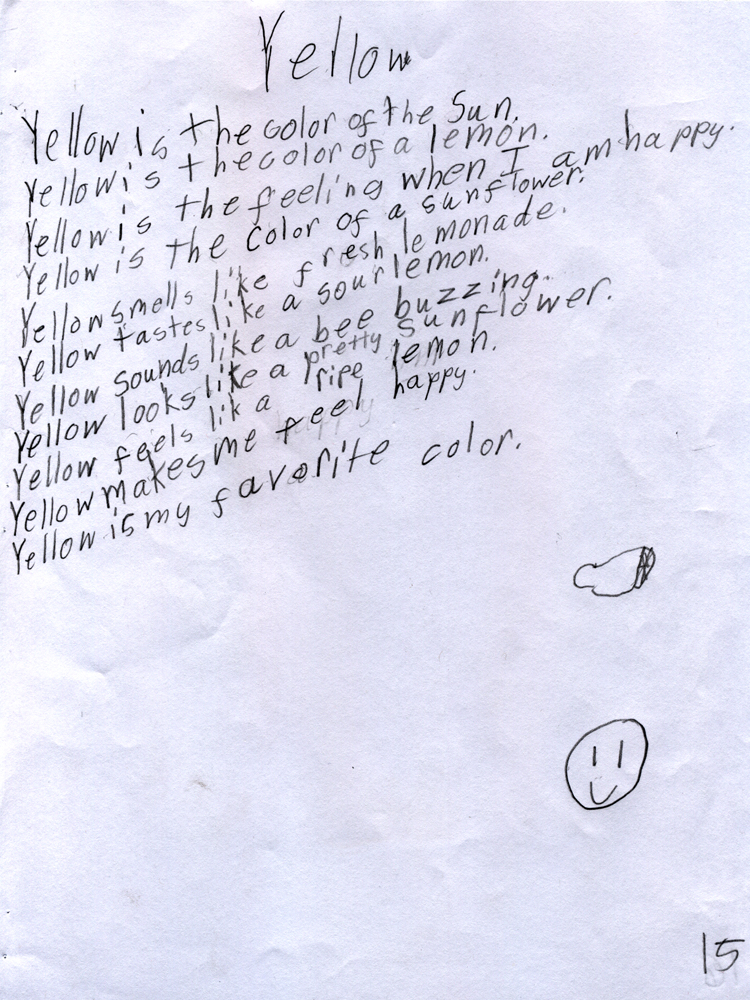 Yellow
Yellow is the color of the Sun.
Yellow is the color of a lemon.
Yellow is the feeling when I am happy.
Yellow is the color of a sunflower.
Yellow smells like fresh lemonade.
Yellow tastes like a sour lemon.
Yellow sounds like a bee buzzing.
Yellow looks like a pretty sunflower.
Yellow feels lik a ripe lemon.
Yellow makes me feel happy.
Yellow is my favorite color.
15